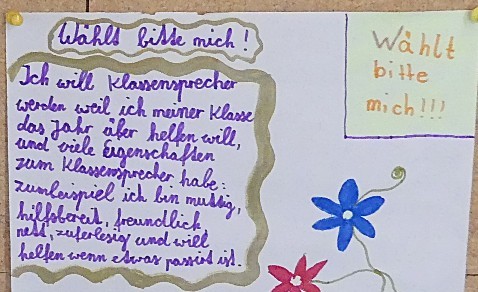 Wählt bitte mich!
Ich will Klassensprecher
werden weil ich meiner Klasse
das Jahr über helfen will,
und viele Eigenschaften
zum Klassensprecher habe:
zumbeispiel ich bin muttig,
hilfsbereit, freundlich,
nett, zuferlesig und will
helfen wenn etwas passirt ist.
Wählt
bitte
mich!!!